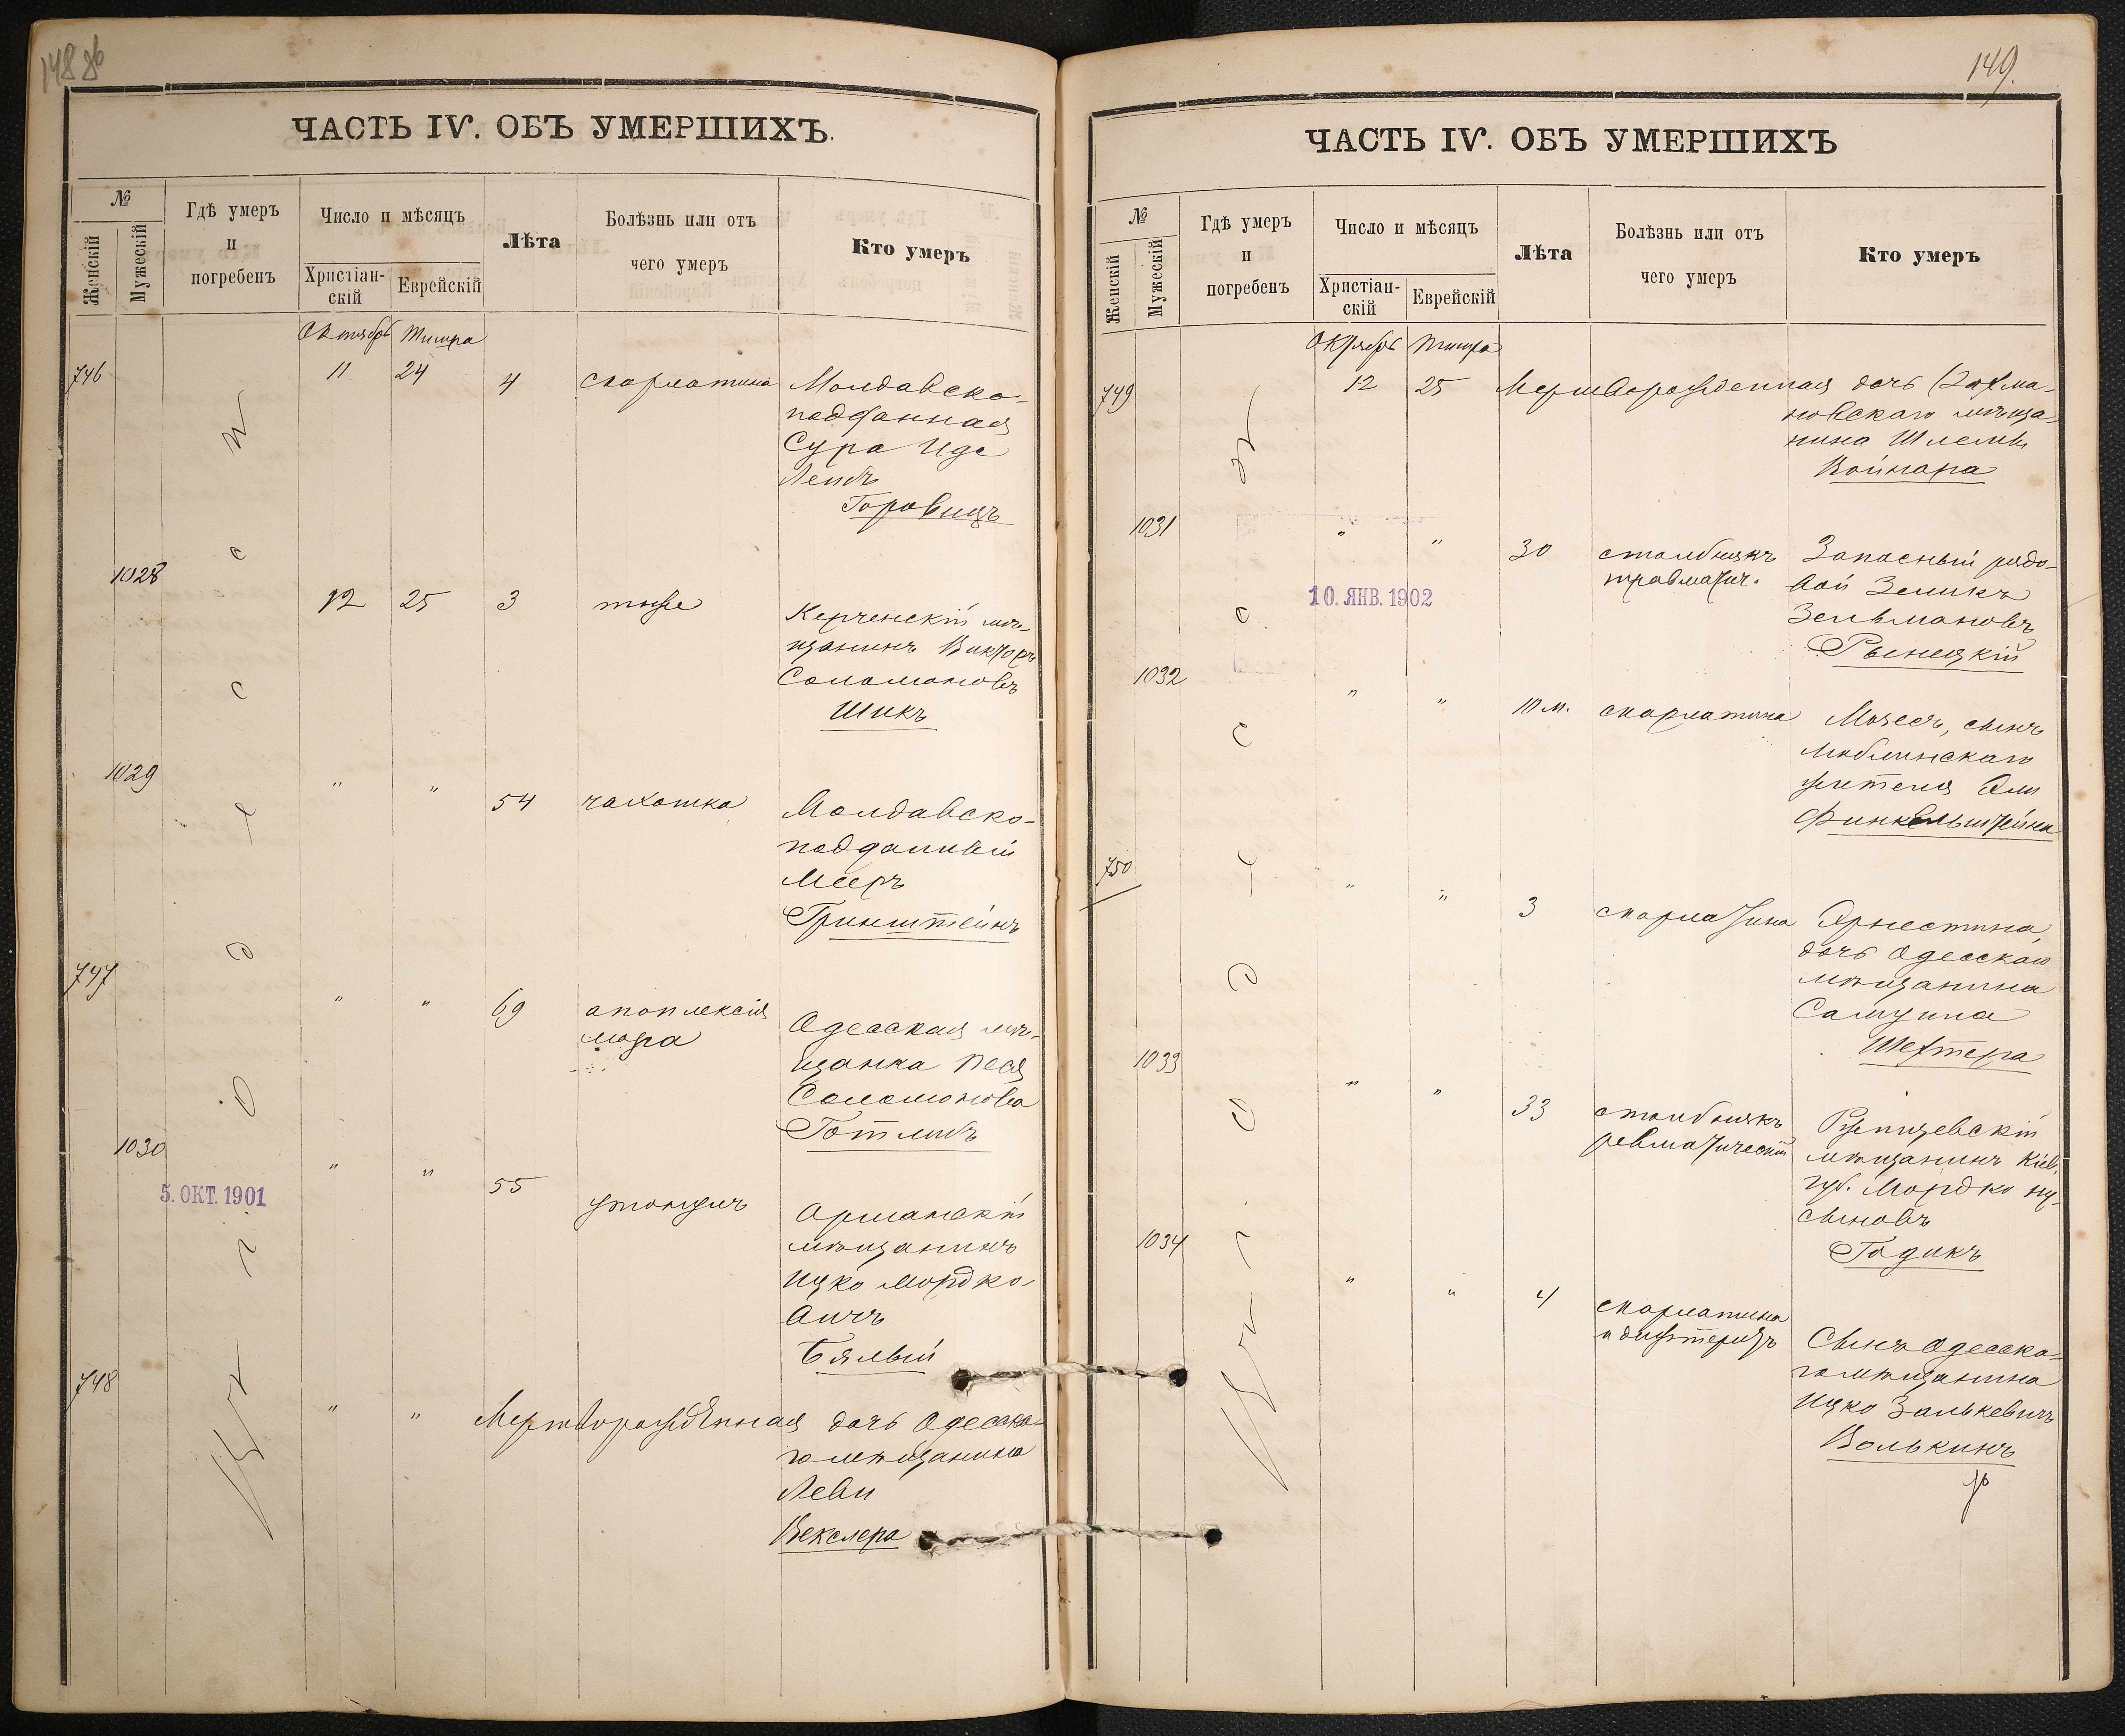 148 об
ЧАСТЬ IV. ОБЪ УМЕРШИХЪ.
№
Женскій
Мужескій
Гдѣ умеръ
и
погребенъ
Число и мѣсяцъ
Христіан-
скій
Еврейскій
Лѣта
Болѣзнь или отъ
чего умеръ
Кто умеръ
Октябрь Тишра
746 11 24 4 скарлатина Молдавско-
подданная
Сура Иде
Лейбъ
Горовицъ
1028 12 25 3 тоже Керченскій мѣ-
щанинъ Викторъ
Соломоновъ
Шикъ
1029 " " 54 чахотка Молдавско-
подданный
Мееръ
Гринштейнъ
747 " " 69 апоплексія
мозга
Одесская мѣ-
щанка Песя
Соломонова
Готлибъ
1030 " " 55 утонулъ
5. ОКТ. 1901
мѣщанинъ
Ицко Мордко-
вичъ
Бялый
748 " " Мертворожденная дочь Одесска-
го мѣщанина
Леви
Векслера
въ г. Одессѣ
149.
ЧАСТЬ IV. ОБЪ УМЕРШИХЪ
№
Женскій
Мужескій
Гдѣ умеръ
и
погребенъ
Число и мѣсяцъ
Христіан-
скій
Еврейскій
Лѣта
Болѣзнь или отъ
чего умеръ
Кто умеръ
Октябрь Тишра
749 12 25 Мертворожденная дочь
новскаго мѣща-
нина Шлемы
Войнара
1031 " " 30 столбнякъ
травматич.
Запасный рядо-
вой Зеликъ
Зельмановъ
Рынецкій
10. ЯНВ. 1902
1032 " " 10 м. скарлатина Мозесъ, сынъ
Люблинскаго
жителя Эли
Финкельштейна
750 " " 3 скарлатина Эрнестина,
дочь Одесскаго
мѣщанина
Самуила
Шехтера
1033 " " 33 столбнякъ
ревматическій
Ржищевскій
мѣщанинъ Кіев.
губ. Мордко Ну-
сыновъ
Годикъ
1034 " " 4 скарлатина
и дифтеритъ
Сынъ Одесска-
го мѣщанина
Ицко Залькевичъ
Волькинъ
въ г. Одессѣ